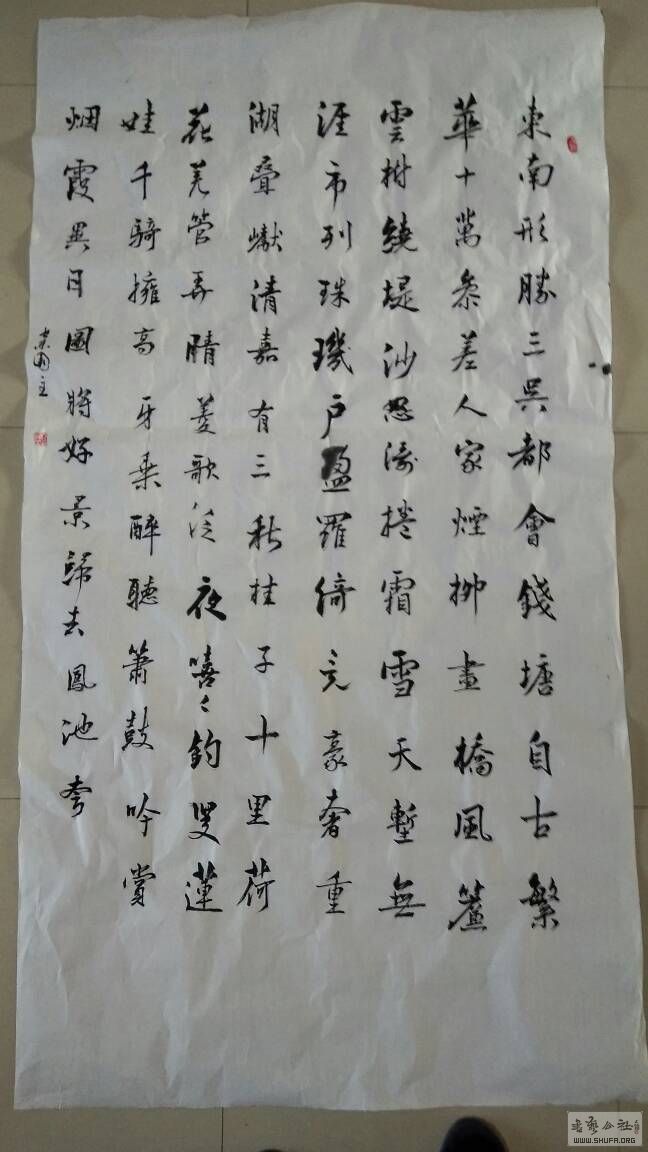 東南形勝三吴都會錢塘自古繁
華十萬叅差人家煙柳畫橋風簾
雲樹繞堤沙怒濤捲霜雪天塹無
涯市列珠璣户盈羅綺竞豪奢重
湖叠巘清嘉有三秋桂子十里荷
花羌管弄晴菱歌泛夜嘻々釣叟蓮
娃千騎擁高牙乘醉聽簫鼓吟賞
烟霞異日圖將好景歸去鳳池夸
书艺公社
WWW.SHUFA.ORG